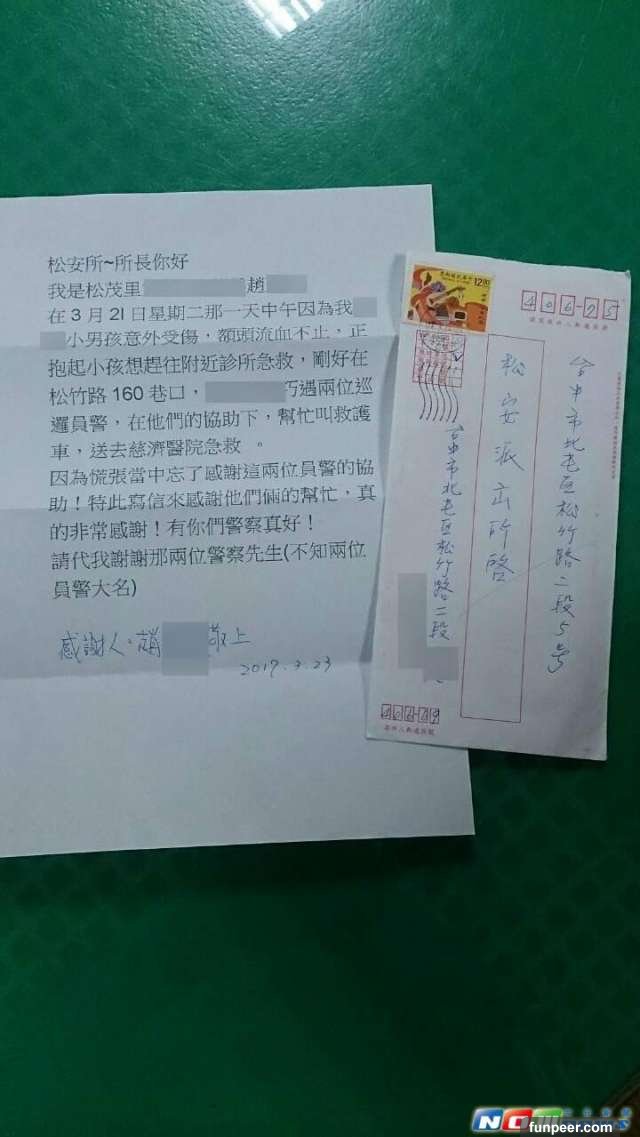 松安所~所長你好
我是松茂里 趙
在3月21日星期二那一天中午因為我
小男孩意外受傷，額頭流血不止，正
抱起小孩想趕往附近診所急救，剛好在
松竹路160巷口， 巧遇兩位巡
邏員警，在他們的協助下，幫忙叫救護
車，送去慈濟醫院急救 。
因為慌張當中忘了感謝這兩位員警的協
助！特此寫信來感謝他們倆的幫忙，真
的非常感謝！有你們警察真好！
請代我謝謝那兩位警察先生(不知兩位
員警大名)
感謝人:趙 敬上
2017.3.23
12.00
406-75
台中市北屯區松竹路二段5号
松安派出所啓
台中市北屯區松竹路二段
406-69
funpeer.com